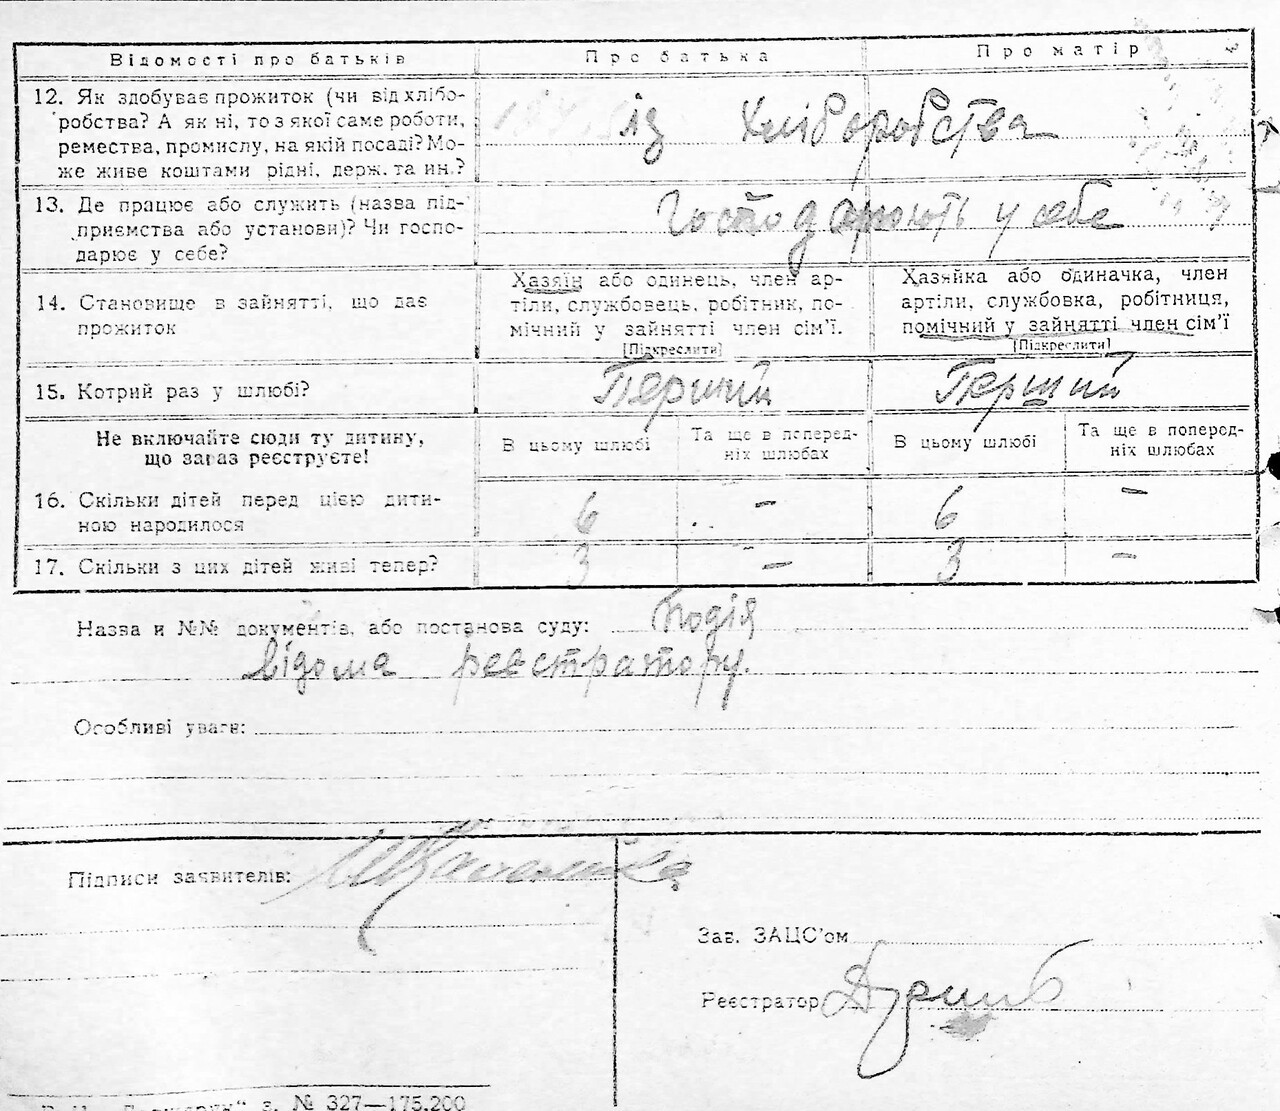 Відомості про батьків Про батька Про матір
12. Як здобуває прожиток (чи від хлібо-
робства? А як ні, то з якої саме роботи,
ремества, промислу, на якій посаді? Мо-
же живе коштами рідні, держ. та ин.?
із хліборобства
13. Де працює або служить (назва під-
приємства або установи)? Чи госпо-
дарює у себе?
Господарюють у себе
14. Становище в зайнятті, що дає
прожиток
Хазяїн або одинець, член ар-
тіли, службовець, робітник, по-
мічний у зайнятті член сім'ї.
[Підкреслити]
Хазяйка або одиначка, член
артіли, службовка, робітниця,
помічний у зайнятті член сім'ї
[Підкреслити]
15. Котрий раз у шлюбі? Перший Перший
Не включайте сюди ту дитину,
що зараз реєструєте!
В цьому шлюбі
Та ще в поперед-
ніх шлюбах
В цьому шлюбі
Та ще в поперед-
ніх шлюбах
16. Скільки дітей перед цією дити-
ною народилося
6 – 6 –
17. Скільки з цих дітей живі тепер? 3 – 3 –
Назва и №№ документів, або постанова суду: Подія
відома реєстратору.
Особливі уваги:
Підписи заявителів:
Зав. ЗАЦС'ом
Реєстратор
з. № 327—175.200